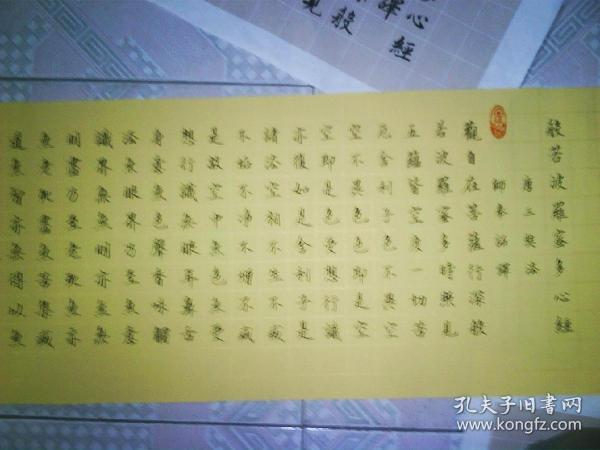 心經
譯
般
見
般若波羅蜜多心經
唐三奘法
師奉詔譯
觀自在菩薩行深般
若波羅蜜多時照見
五蘊皆空度一切苦
厄舍利子色不異空
空不異色色即是空
空即是色受想行識
亦復如是舍利子是
諸法空相不生不滅
不垢不淨不增不減
是故空中無色無受
想行識無眼耳鼻舌
身意無色聲香味觸
法無眼界乃至無意
識界無無明亦無無
明盡乃至無老死亦
無老死盡無苦集滅
道無智亦無得以無
孔夫子旧书网
www.kongfz.com